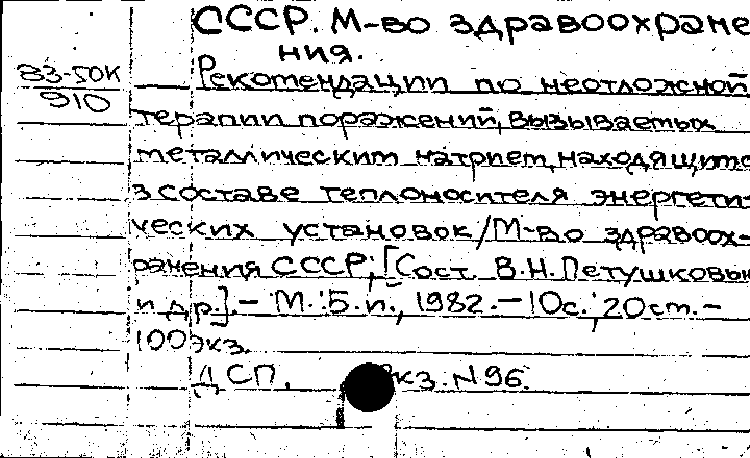 СССР. М-во здравоохране
ния.
83-50К
910
Рекомендации по неотложной
терапии поражений, вызываемых
металлическим натрием, находящимс
в составе теплоносителя энергети-
ческих установок/М-во здравоох-
ранения СССР; [Сост. В.Н. Петушковым
и др.]. – М.: Б.и., 1982. – 10с.; 20 cm. –
100 экз.
ДСП. кз. N 96.